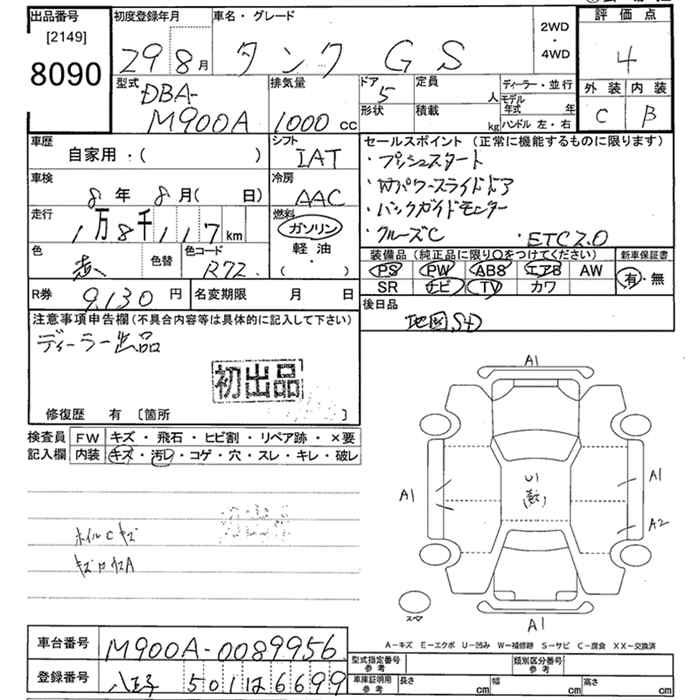 出品番号 初度登録年月 車名・グレード 評価点
[2149]
8090 29 8月 タンク GS 2WD・4WD 4
型式 排気量 ドア 定員 ディーラー・並行 外装 内装
DBA-M900A 1000cc 5 人 モデル年式 年 C B
形状 積載 kg ハンドル 左・右
車歴 シフト セールスポイント (正常に機能するものに限ります)
自家用・( ) IAT ・プッシュスタート
車検 冷房 ・Wパワースライドドア
8年 8月( 日) AAC ・バックガイドモニター
走行 燃料 ・クルーズC ・ETC2.0
1万8千117km ガソリン
軽油
・( )
色 色替 色コード R72 装備品 (純正品に限り○をつけてください) 新車保証書
PS PW ABS エアB AW 有・無
SR ナビ TV カワ
R券 9,130円 名変期限 月 日 後日品
地図SD
注意事項申告欄 (不具合内容等は具体的に記入して下さい)
ディーラー出品
初出品
修復歴 有 〔箇所 〕
検査員 FW キズ・飛石・ヒビ割・リペア跡・×要
記入欄 内装 キズ・汚レ・コゲ・穴・スレ・キレ・破レ
A1
U1
A1
A1
A2
ホイルCキズ
スペア
A1
A-キズ E-エクボ U-凹み W-補修跡 S-サビ C-腐食 XX-交換済
車台番号 M900A-0089956
型式指定番号 参考 類別区分番号 参考
登録番号 八王子 501
車庫証明用 参考 長さ cm 幅 cm 高さ cm